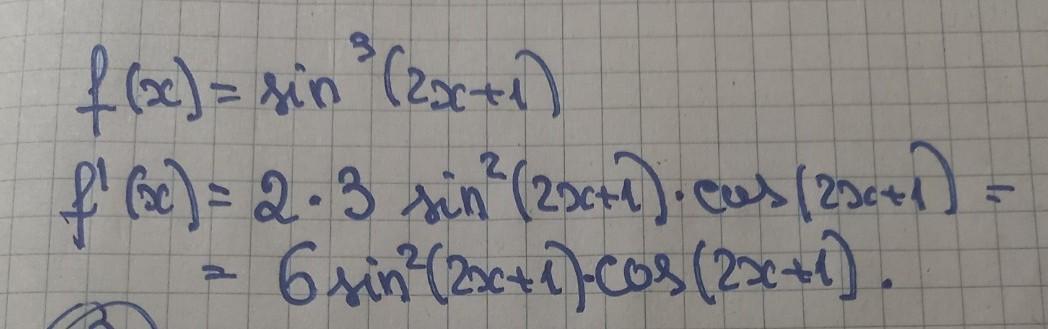 f(x) = sin³(2x+1)
f'(x) = 2·3 sin²(2x+1)·cos(2x+1) =
= 6 sin²(2x+1)·cos(2x+1).